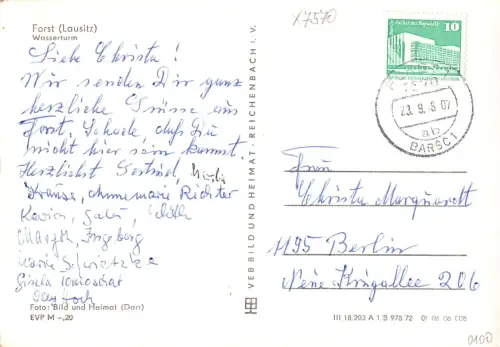 Forst (Lausitz)
Wasserturm
Liebe Christa!
Wir senden Dir ganz
herzliche Grüsse aus
Forst. Schade daß Du
nicht hier sein kannst.
Herzlichst
Krause, Annemarie Richter
Karin, Gabi,
Margth, Ingeborg
Gisela
Foto: Bild und Heimat (Darr)
EVP M –,20
VEB BILD UND HEIMAT · REICHENBACH i. V.
X7570
Palast der Republik
10
23.9.8.07
ab
Frau
Christa Marquardt
1195 Berlin
Neue Krugallee 206
III 18 203 A 1 B 978 72
0100